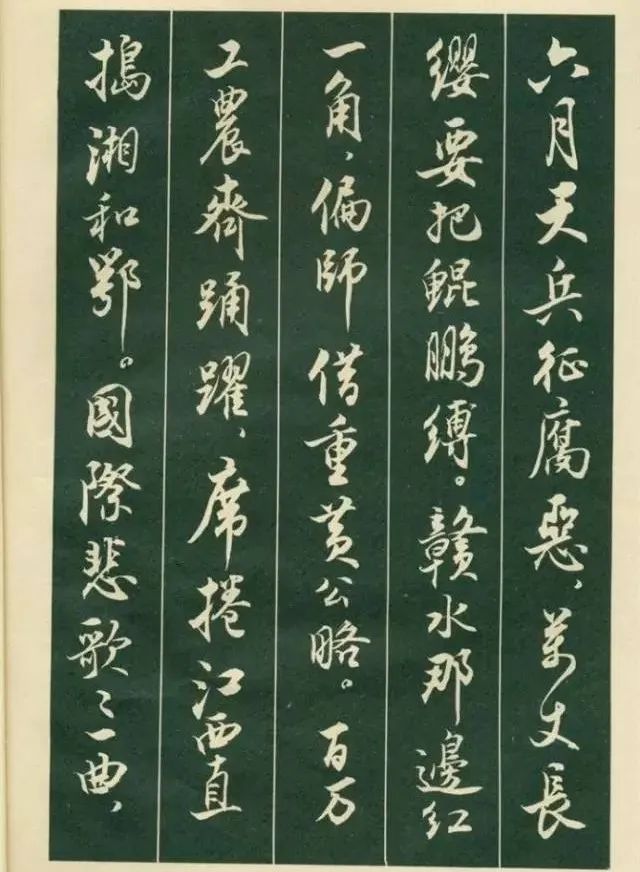 六月天兵征腐惡，萬丈長
纓要把鯤鵬縛。贛水那邊紅
一角，偏師借重黃公略。百万
工農齊踊躍，席捲江西直
搗湘和鄂。國際悲歌歌一曲，